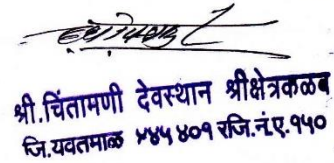 श्री.चिंतामणी देवस्थान श्रीक्षेत्रकळंब
जि.यवतमाळ ४४५ ४०१ रजि.नं.ए.१५०